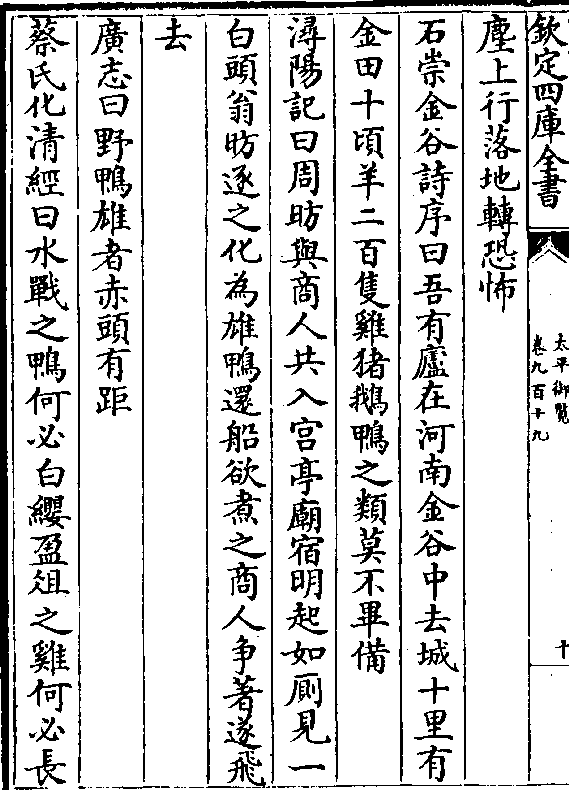 欽定四庫全書
太平御覽
卷九百十九
十
塵上行落地轉恐怖
石崇金谷詩序曰吾有廬在河南金谷中去城十里有
金田十頃羊二百隻雞猪鵝鴨之類莫不畢備
潯陽記曰周昉與商人共入宫亭廟宿明起如厠見一
白頭翁昉逐之化為雄鴨還船欲煮之商人争著遂飛
去
廣志曰野鴨雄者赤頭有距
蔡氏化清經曰水戰之鴨何必白纓盈俎之雞何必長